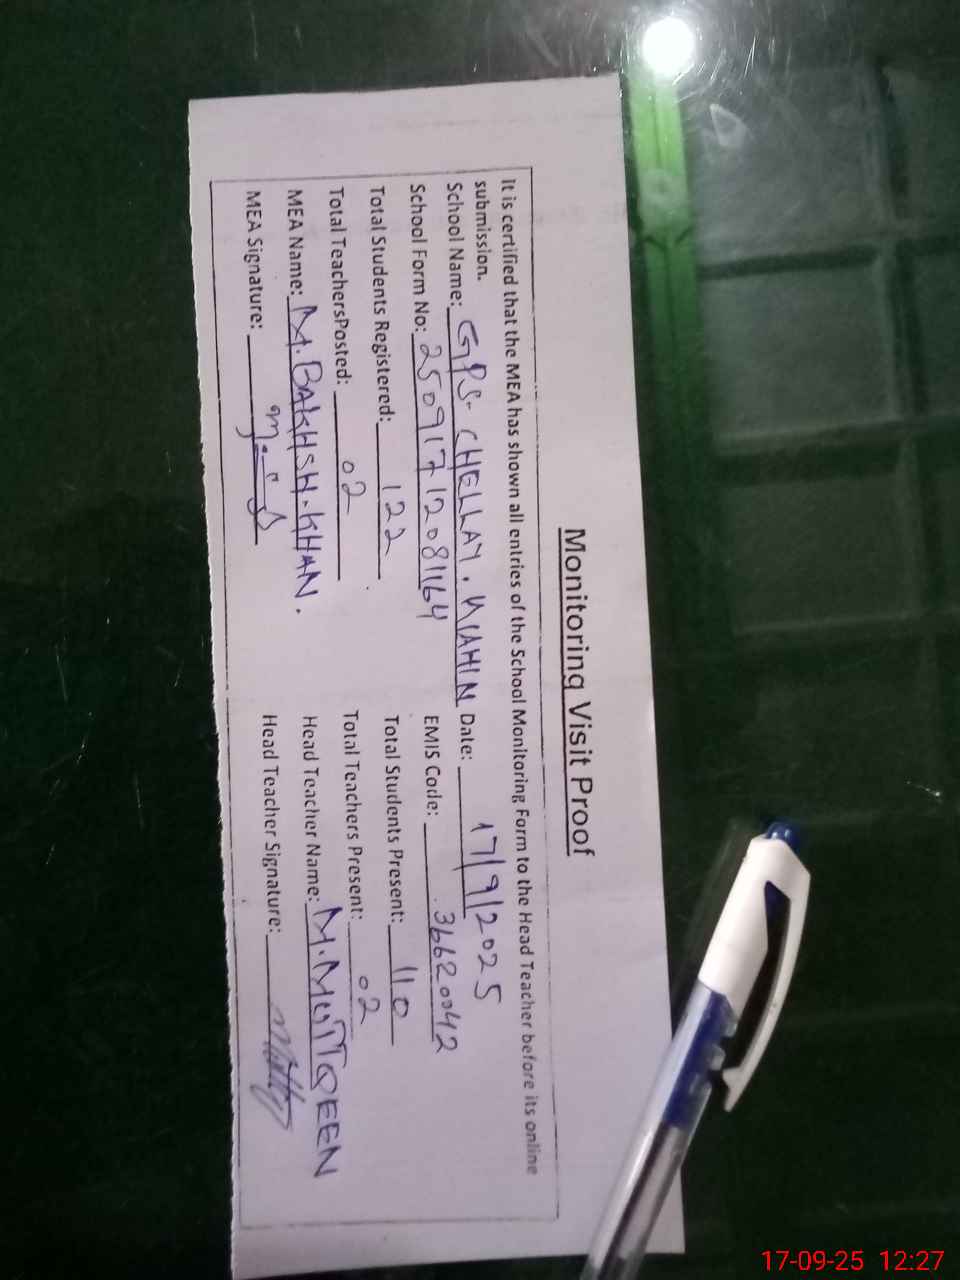 Monitoring Visit Proof
It is certified that the MEA has shown all entries of the School Monitoring Form to the Head Teacher before its online
submission.
School Name: GPS- CHELLAY. WAHIN Date: 17/9/2025
School Form No: 25091712081164 EMIS Code: 36620042
Total Students Registered: 122 Total Students Present: 110
Total TeachersPosted: 02 Total Teachers Present: 02
MEA Name: M.BAKHSH.KHAN. Head Teacher Name: M.MUTTQEEN
MEA Signature: Head Teacher Signature:
17-09-25 12:27